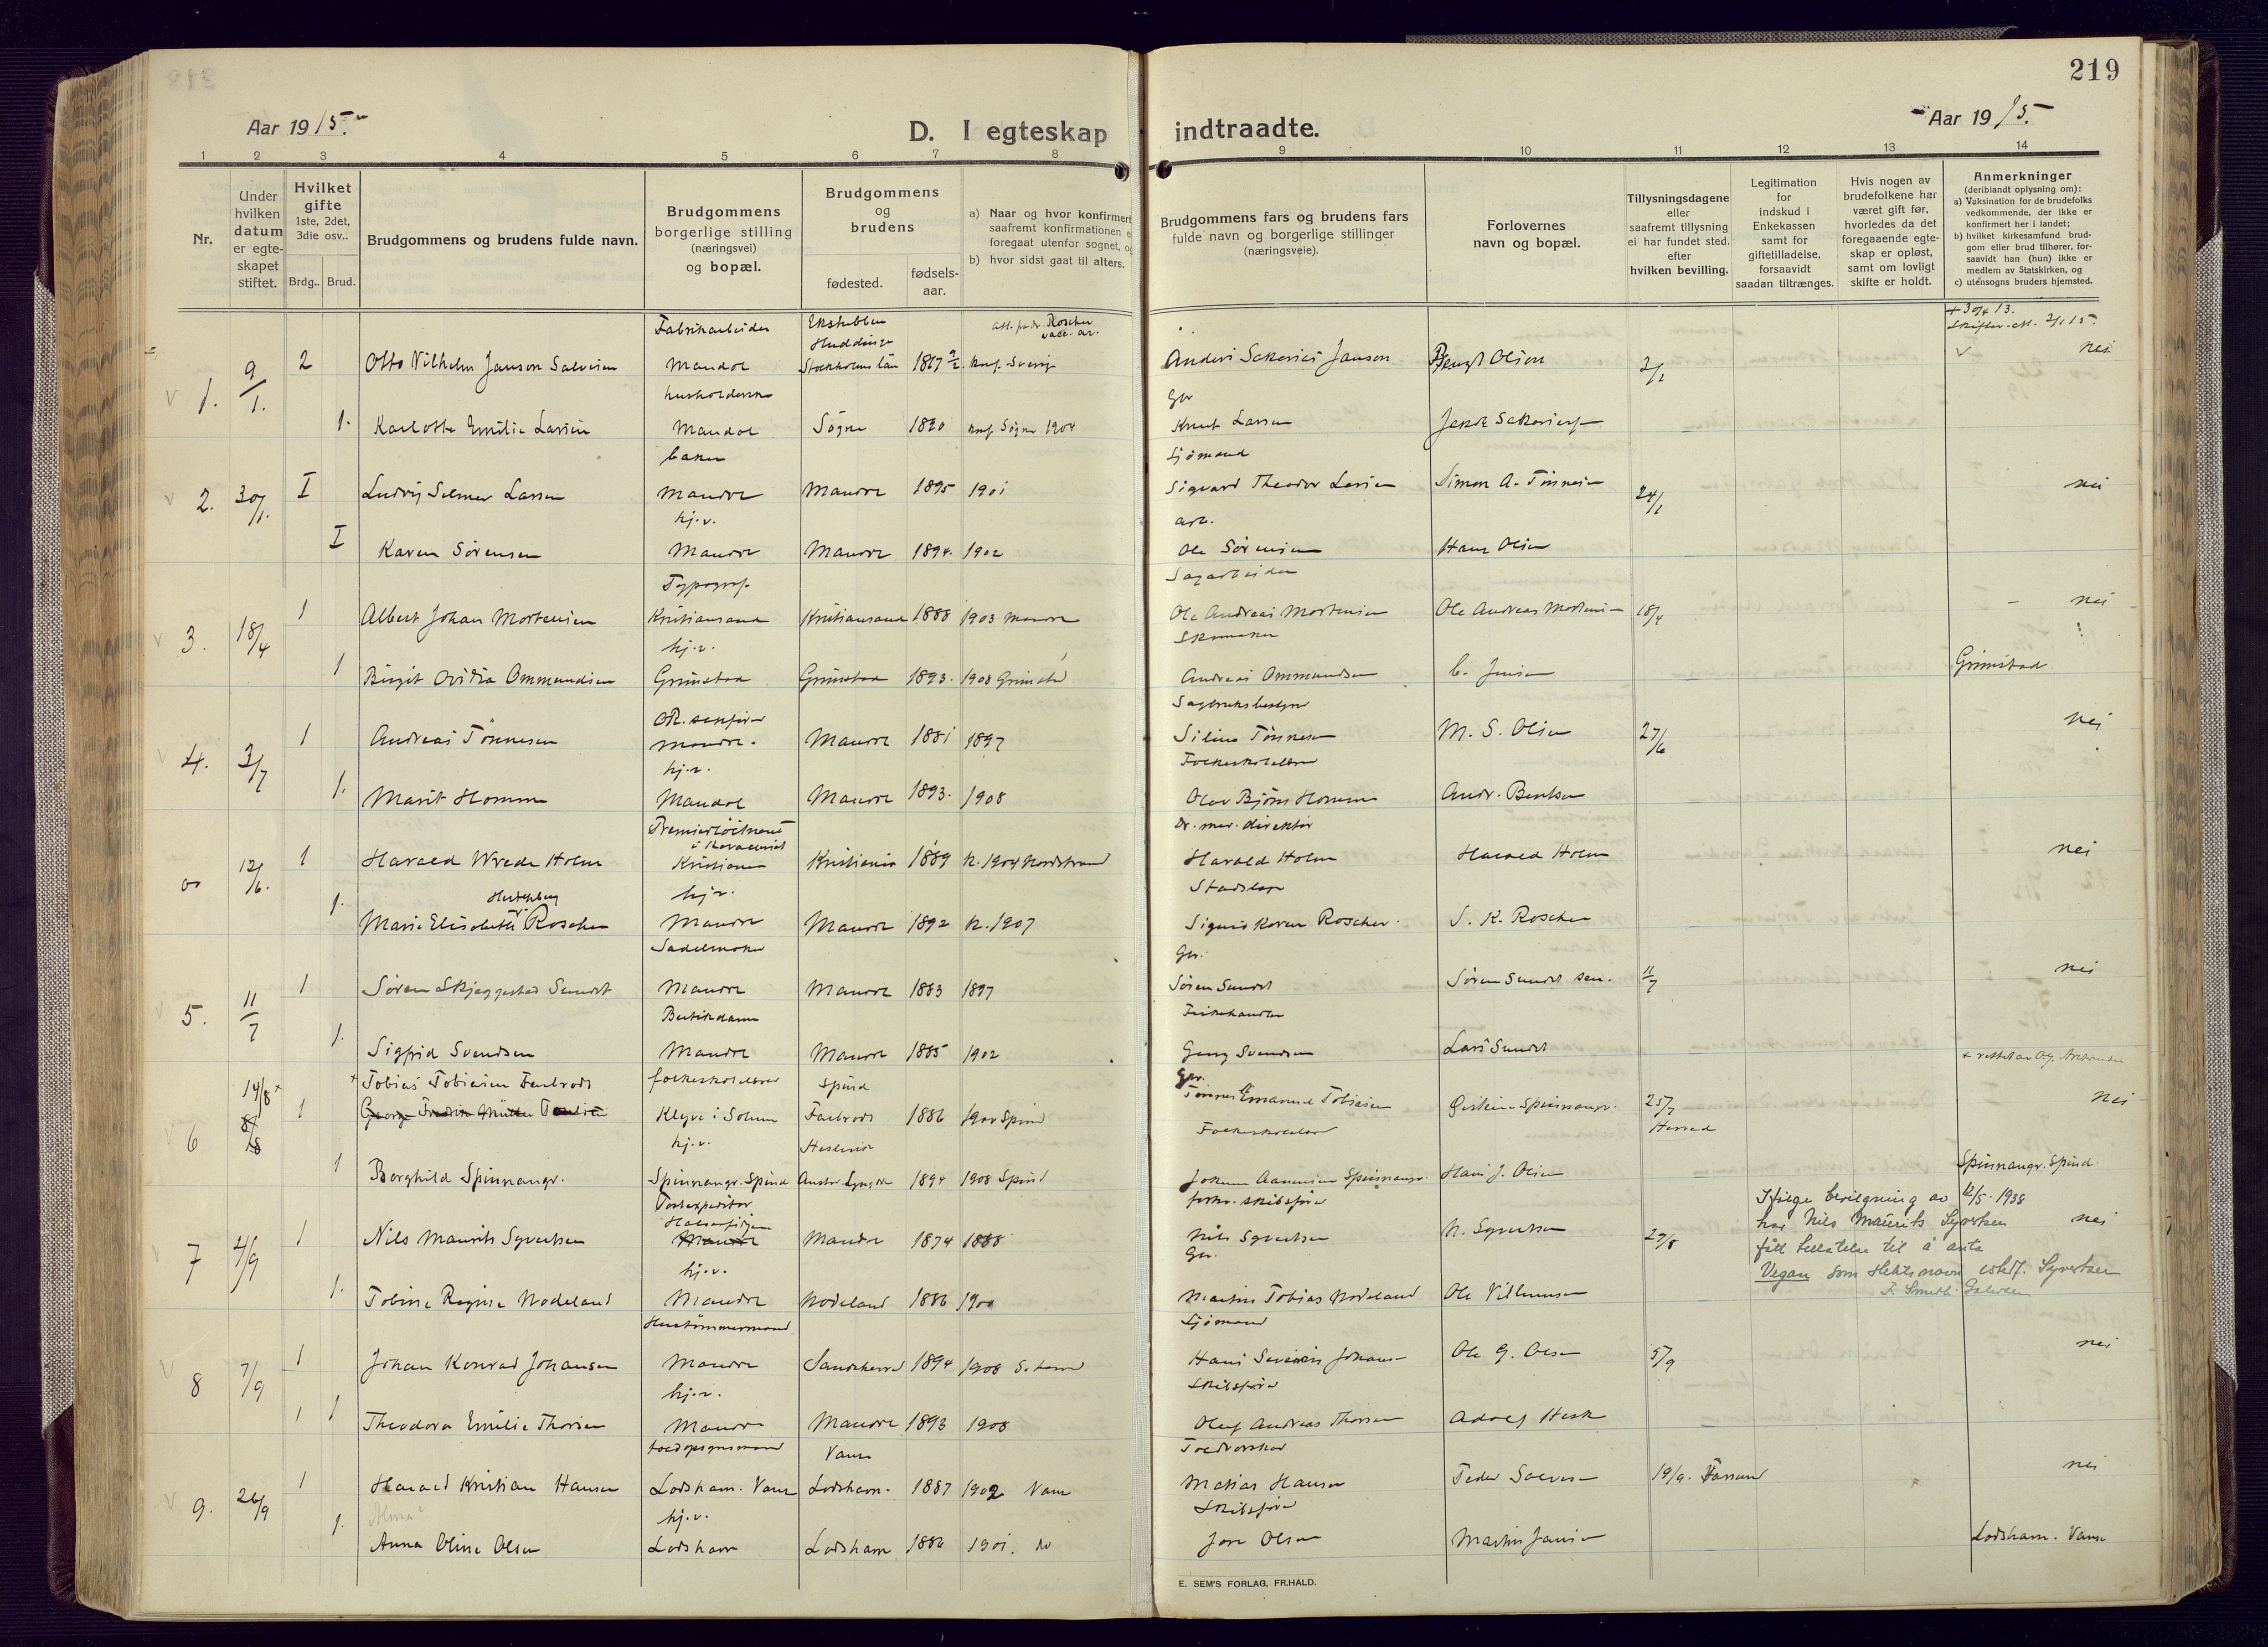 219
Aar 1915.
D. I egteskap indtraadte.
Aar 1915.
1 2 3 4 5 6 7 8 9 10 11 12 13 14
Nr.
Under hvilken datum er egteskapet stiftet.
Hvilket gifte 1ste, 2det, 3die osv..
Brdg.. Brud.
Brudgommens og brudens fulde navn.
Brudgommens borgerlige stilling (næringsvei) og bopæl.
Brudgommens og brudens
fødested.
fødsels-aar.
a) Naar og hvor konfirmert
saafremt konfirmationen e
foregaat utenfor sognet, og
b) hvor sidst gaat til alters.
Brudgommens fars og brudens fars
fulde navn og borgerlige stillinger
(næringsveie).
Forlovernes
navn og bopæl.
Tillysningsdagene
eller
saafremt tillysning
ei har fundet sted,
efter
hvilken bevilling.
Legitimation
for
indskud i
Enkekassen
samt for
giftetilladelse,
forsaavidt
saadan tiltrænges.
Hvis nogen av
brudefolkene har
været gift før,
hvorledes da det
foregaaende egte-
skap er opløst,
samt om lovligt
skifte er holdt.
Anmerkninger
(deriblandt oplysning om):
a) Vaksination for de brudefolks
vedkommende, der ikke er
konfirmert her i landet;
b) hvilket kirkesamfund brud-
gom eller brud tilhører, for-
saavidt han (hun) ikke er
medlem av Statskirken, og
c) utensogns bruders hjemsted.
Fabrikarbeider Huddinge
+ 30/4 13.
1. 9/1. 2 Otto Vilhelm Janson Salvesen Mandal Stockholms län 1887 konf. Sverige Anders Sakarias Janson Bengt Olsen nei
Gbr
1. Karlotte Emilie Larsen Mandal Søgne 1890 konf Søgne 1904 Knut Larsen
baker Sjømand
2. 30/1. I Ludvig Selmer Larsen Mandal Mandal 1895 1901 Sigvard Theodor Larsen Simon A. Tönnesen 24/1 nei
hj.v. arb.
I Karen Sørensen Mandal Mandal 1894. 1902 Ole Sørensen Hans Olsen
Typograf Sagarbeider
3. 18/4 1 Albert Johan Mortensen Kristiansand Kristiansand 1888 1903 Mandal Ole Andreas Mortensen Ole Andreas Mortensen 18/4 nei
hj.v. Skomaker
1 Birgit Ovidia Ommundsen Grimstad Grimstad 1893. 1908 Grimstad Andreas Ommundsen C. Jensen Grimstad
Sagbruksbestyrer
4. 3/7 1 Andreas Tönnesen Mandal. Mandal 1881 1897 Silius Tönnesen M. S. Olsen 27/6 nei
hj.v. Folkeskolelærer
1. Marit Homme Mandal Mandal 1893. 1908 Olav Bjørn Homme Andr. Bentsen
Premierløitnant i Kavaleriet Dr. med. direktør
12/6. 1 Harald Wrede Holm Kristiania Kristiania 1889 k. 1904 Nordstrand Harald Holm Harald Holm nei
hj.v. Stadslæge
1. Marie Elisabeth Roscher Mandal Mandal 1892 k. 1907 Sigurd Koren Roscher S. K. Roscher
Sadelmaker Gbr.
5. 11/7 1 Søren Skjeggestad Sundt Mandal Mandal 1883 1897 Søren Sundt Søren Sundt sen. 11/7 nei
Butikdame Fiskehandler
1. Sigfrid Svendsen Mandal Mandal 1885 1902 Georg Svendsen Lars Sundt
14/8 + + Tobias Tobiassen Farbrodt folkeskolelærer Spind Gbr.
6 8/8 1 Klyve i Solum Farbrodt 1886 1900 Spind Tønnes Emanuel Tobiassen 25/7 Herred nei
hj.v. Folkeskolelærer
1 Borghild Spinnangr. Spinnangr. Spind 1894 1908 Spind Hans J. Olsen Spinnangr. Spind
Postexpeditør forhv. skibsfører
7 4/9 1 Nils Maurits Syvertsen Mandal Mandal 1874 1888 Nils Syvertsen N. Syvertsen 29/8 nei
hj.v. Gbr.
1. Tobine Regine Nodeland Mandal Nodeland 1886 1900 Martin Tobias Nodeland Ole Villumsen
Ifølge bevilgning av 12/5. 1938
har Nils Maurits Syvertsen
fått tillatelse til å anta
Vegan som slektsnavn istedf. Syvertsen
Hustømmermand Sjømand
8 7/9 1 Johan Konrad Johansen Mandal Sandeherred 1894 1908 S. herred Hans Severin Johansen Ole G. Olsen 5/9 nei
hj.v. Skibsfører
1 1 Theodora Emilie Thorsen Mandal Mandal 1893 1908 Oluf Andreas Thorsen Adolf Hesk
Vanse
9. 26/9 1 Harald Kristian Hansen Lodsham. Vanse Lodsham. 1887 1902 Vanse Matias Hansen Peder Salvesen 19/9. Farsund nei
hj.v. Skibsfører
1. Anna Oline Olsen Lodsham Lodsham 1886 1901. do Jon Olsen Martin Jansen Lodsham. Vanse
E. SEM'S FORLAG, FR.HALD.